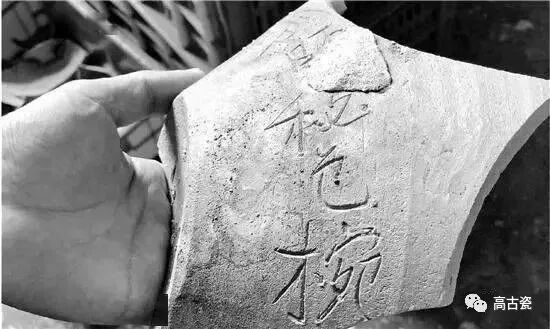 秘色椀
高古瓷